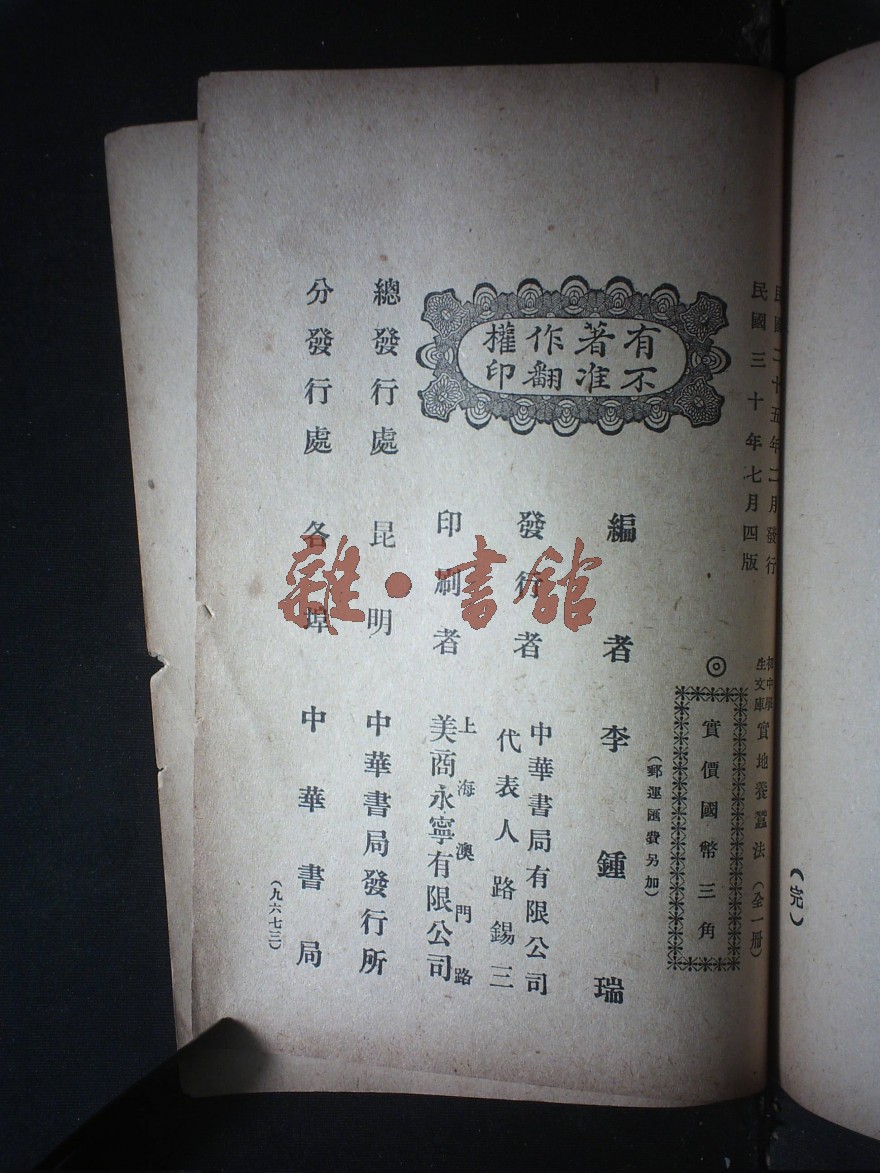 民國二十五年二月發行
民國三十年七月四版
初中學
生文庫
實地養蠶法（全一冊）
◎
實價國幣三角
（郵運匯費另加）
有著作權
不准翻印
編者 李鍾瑞
發行者 中華書局有限公司
代表人 路錫三
印刷者 上海澳門路
美商永寧有限公司
總發行處 昆明 中華書局發行所
分發行處 各埠 中華書局
（九六七三）
（完）
雜·書館